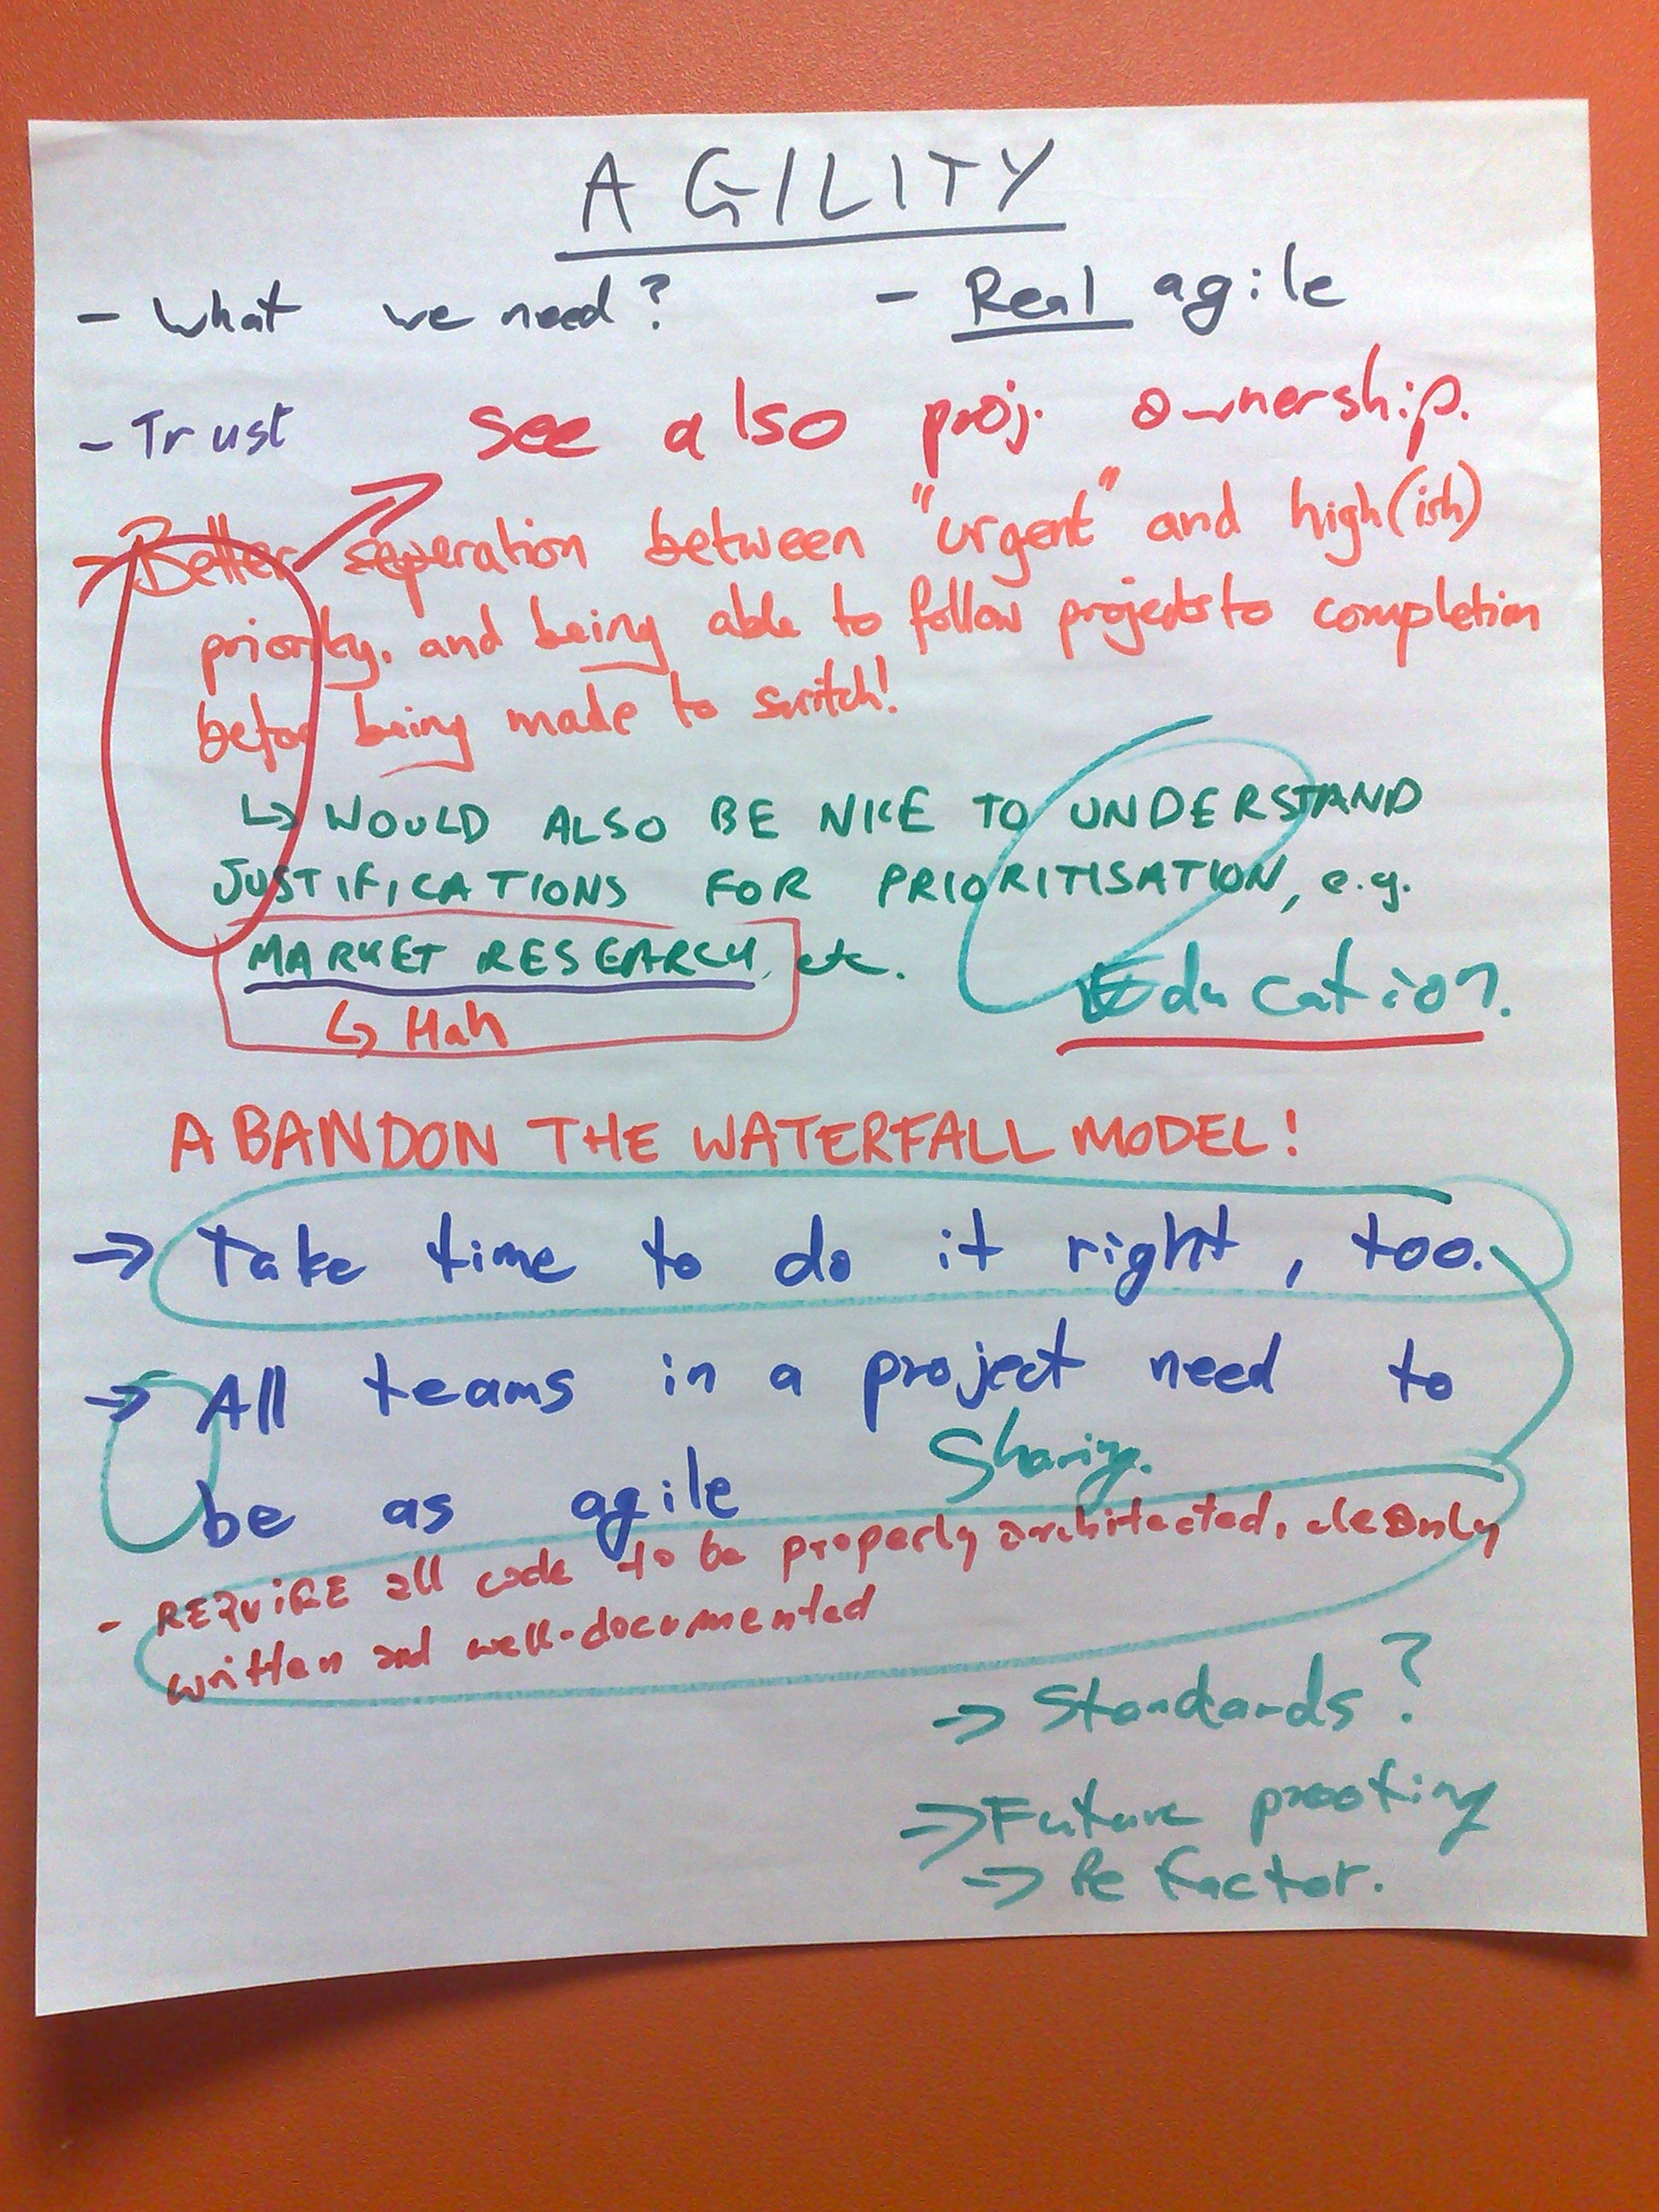 AGILITY
- What we need? - Real agile
- Trust see also proj. ownership.
- Better seperation between "urgent" and high(ish)
priority. and being able to follow projects to completion
before being made to switch!
↳ WOULD ALSO BE NICE TO UNDERSTAND
JUSTIFICATIONS FOR PRIORITISATION, e.g.
MARKET RESEARCH, etc.
Education.
↳ Hah
ABANDON THE WATERFALL MODEL!
→ Take time to do it right, too.
→ All teams in a project need to
be as agile Sharing.
- REQUiRE all code to be properly architected, cleanly
written and well-documented
→ Standards?
→ Future proofing
→ Refactor.